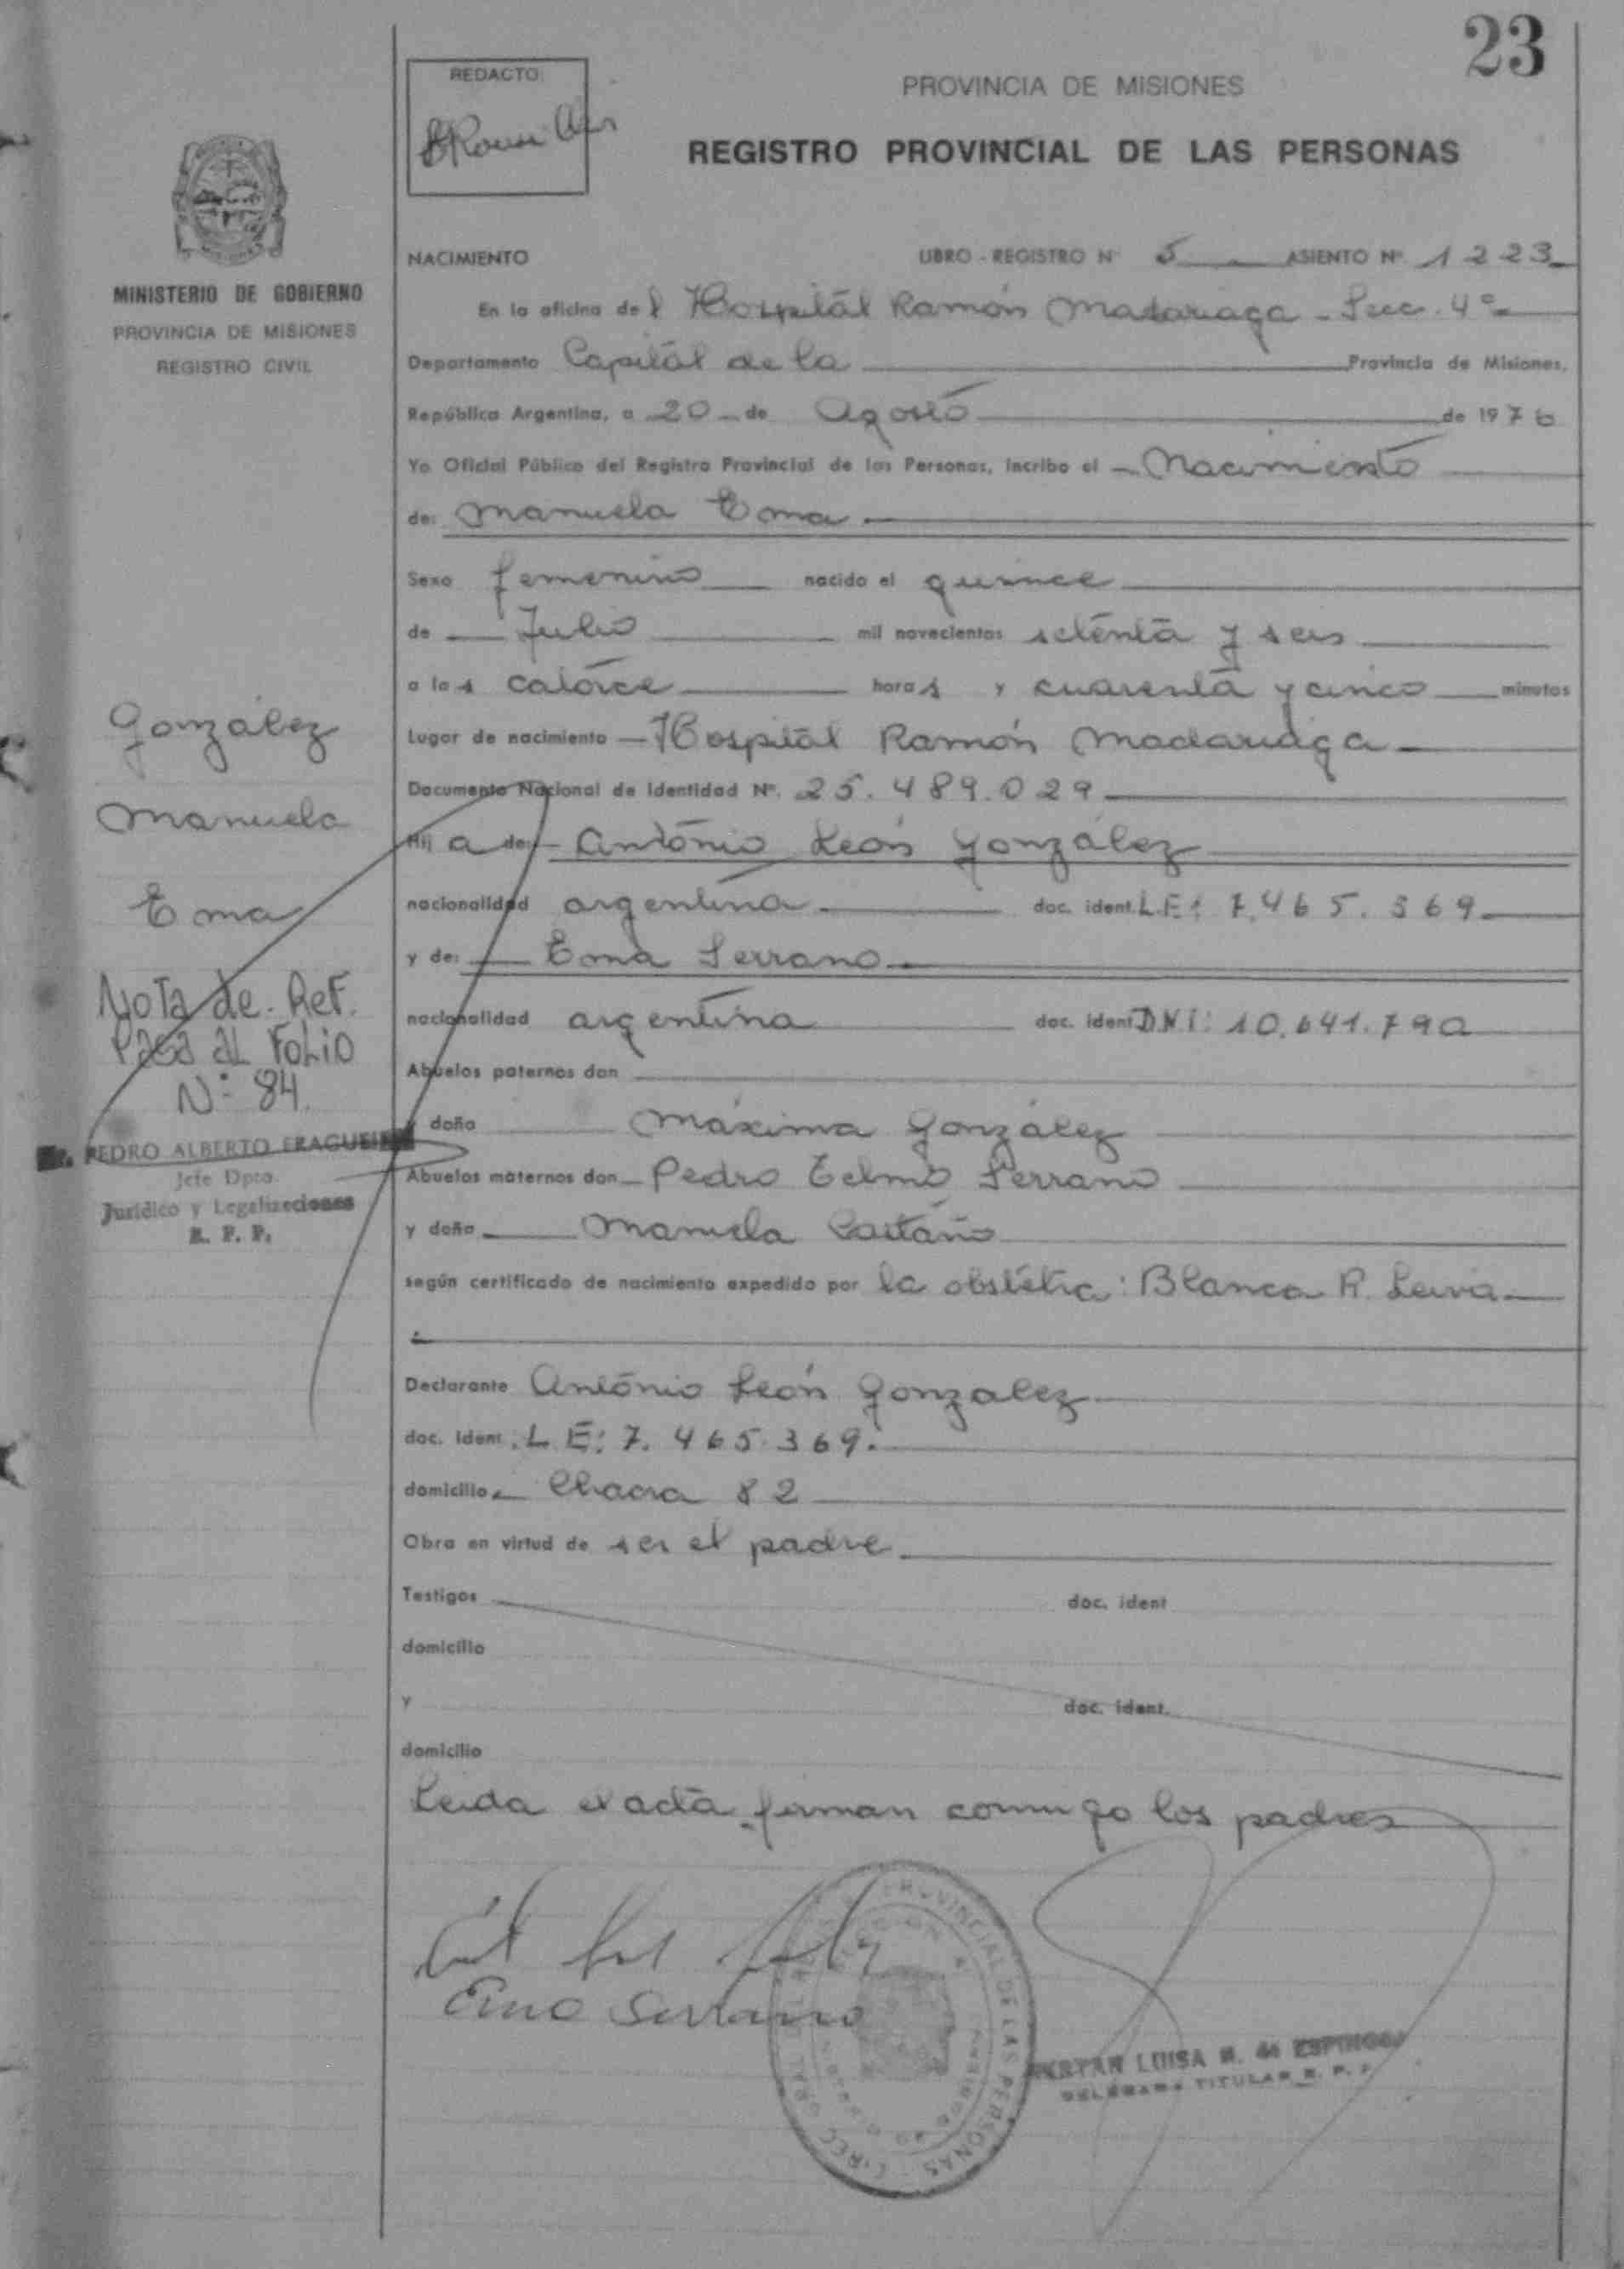 23
REDACTO:
PROVINCIA DE MISIONES
REGISTRO PROVINCIAL DE LAS PERSONAS
MINISTERIO DE GOBIERNO
PROVINCIA DE MISIONES
REGISTRO CIVIL
NACIMIENTO LIBRO - REGISTRO N° 5 ASIENTO N° 1223
En la oficina del Hospital Ramón Madariaga - Secc. 4ª
Departamento Capital de la Provincia de Misiones,
República Argentina, a 20 de Agosto de 1976
Yo Oficial Público del Registro Provincial de las Personas, incribo el Nacimiento
de: Manuela Ema
Sexo femenino nacido el quince
de Julio mil novecientos setenta y seis
a las catorce horas y cuarenta y cinco minutos
Lugar de nacimiento Hospital Ramón Madariaga
Documento Nacional de Identidad N°. 25.489.029
Hija de: Antonio León González
nacionalidad argentina doc. ident. L.E: 7.465.369
y de: Ema Serrano
nacionalidad argentina doc. ident D.N.I: 10.641.790
Abuelos paternos don
y doña Máxima González
Abuelos maternos don Pedro Telmo Serrano
y doña Manuela
según certificado de nacimiento expedido por la obstétra: Blanca R. Leiva
Declarante Antonio León Gonzalez
doc. ident. L.E: 7.465.369.
domicilio Chacra 82
Obra en virtud de ser el padre
Testigos doc. ident
domicilio
y doc. ident.
domicilio
Leida el acta firman conmigo los padres
González
Manuela
Ema
Nota de Ref.
Pasa al Folio
N° 84.
PEDRO ALBERTO
Jefe Dpto.
Jurídico y Legalizaciones
R. P. P.
Ema Serrano
PROVINCIAL DE LAS PERSONAS
LUISA M. de ESPINOSA
DELEGADA TITULAR R. P. P.